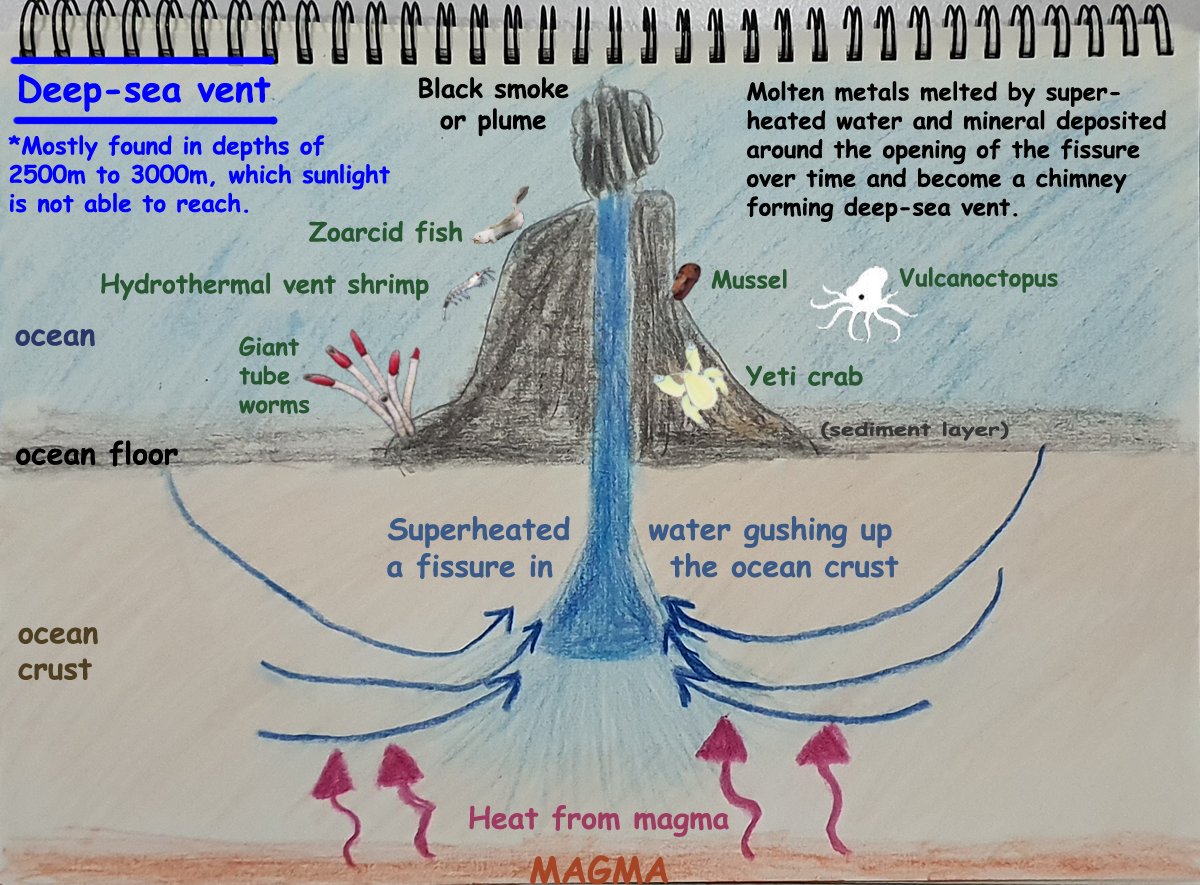 Deep-sea vent
*Mostly found in depths of
2500m to 3000m, which sunlight
is not able to reach.
Black smoke
or plume
Molten metals melted by super-
heated water and mineral deposited
around the opening of the fissure
over time and become a chimney
forming deep-sea vent.
Zoarcid fish
Hydrothermal vent shrimp
Mussel
Vulcanoctopus
ocean
Giant
tube
worms
Yeti crab
(sediment layer)
ocean floor
Superheated water gushing up
a fissure in the ocean crust
ocean
crust
Heat from magma
MAGMA